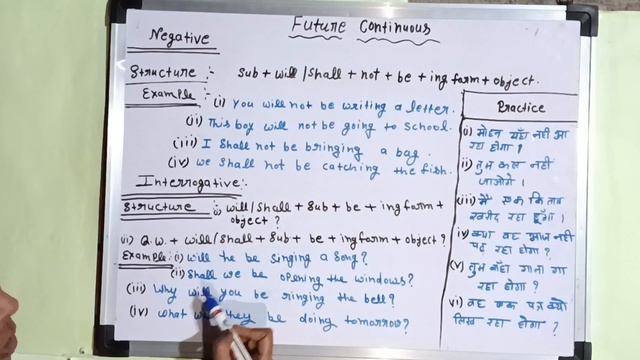 Future Continuous
Negative
Structure :- Sub + will/shall + not + be + ing form + object.
Example :- (i) You will not be writing a letter.
(ii) This boy will not be going to school.
(iii) I shall not be bringing a bag.
(iv) we shall not be catching the fish.
Interrogative:-
Structure i) will/shall + sub + be + ing form +
object?
ii) Q.W. + will/shall + sub + be + ing form + object?
Example: (i) will he be singing a song?
(ii) Shall we be opening the windows?
(iii) Why will you be ringing the bell?
(iv) what they be doing tomorrow?
Practice
(i) मोहन यहाँ नहीं आ
रहा होगा ?
ii) तुम कल नहीं
जाओगे ।
(iii) मैं एक किताब
खरीद रहा हूँगा ।
iv) क्या वह आज नहीं
पढ़ रहा होगा ?
(v) तुम कहाँ गाना गा
रहा होगा ?
vi) वह एक पत्र क्यों
लिख रहा होगा ?